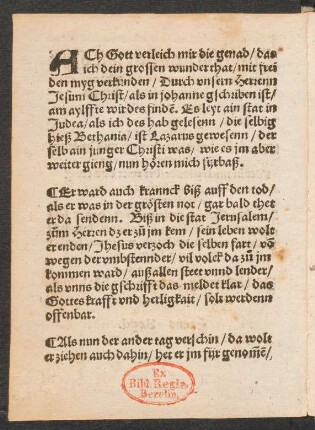 ACh Gott verleich mir die genad / das
ich dein grossen wunderthat / mit frei
den myg verkünden / Durch vnsern Herrenn
Jesum Christ / als in johanne gschriben ist /
am aylffte wirdes findẽ. Es leyt ain stat in
Judea / als ich des hab gelesenn / die selbig
hieß Bethania / ist Lazarus gewesenn / der
selb ain junger Christi was / wie es jm aber
weiter gieng / nun hören mich fürbaß.
¶Er ward auch kranнck biß auff den tod /
als er was in der grösten not / gar bald thet
er da sendenn. Biß in die stat Jerusalem /
zům Herzen dz er zů jm kem / sein leben wolt
er enden / Jhesus verzoch die selben fart / vō
wegen der vmbstennder / vil volck da zů jm
kommen ward / auß allen steet vnnd lender /
als vnns die gschrifft das meldet klar / das
Gottes krafft vnd herligkait / solt werdenn
offenbar.
¶Als nun der ander tag verschin / da wolt
er ziehen auch dahin / het er jm für genom̃ē /
Ex
Bibl. Regia
Berolin.